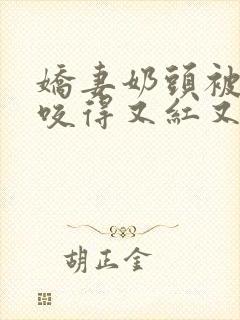 嬌妻奶頭被
咬得又紅又
胡正金